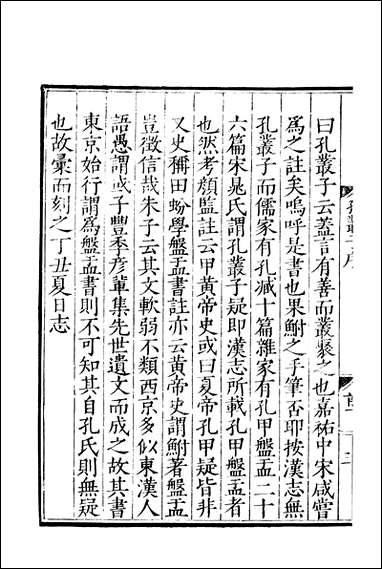 曰孔叢子云蓋言有善而叢聚之也嘉祐中宋咸嘗
為之註矣嗚呼是書也果鮒之手筆否耶按漢志無
孔叢子而儒家有孔臧十篇雜家有孔甲盤盂二十
六篇宋晁氏謂孔叢子疑即漢志所載孔甲盤盂者
也然考顏監註云甲黃帝史或曰夏帝孔甲疑皆非
又史稱田蚡學盤盂書註亦云黃帝史謂鮒著盤盂
豈徵信哉朱子云其文軟弱不類西京多似東漢人
語愚謂或子豐季彥輩集先世遺文而成之故其書
東京始行謂為盤盂書則不可知其自孔氏則無疑
也故彙而刻之丁丑夏日志